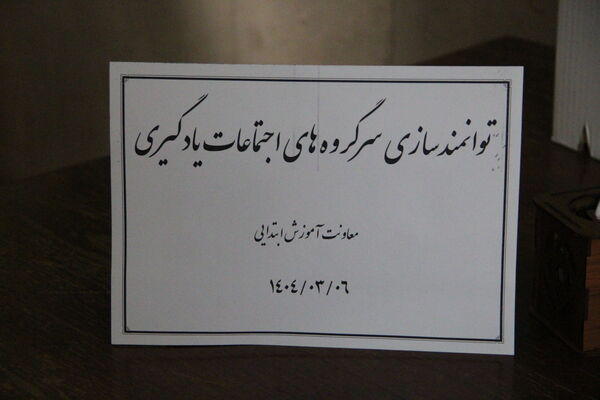 توانمندسازی سرگروه های اجتماعات یادگیری
معاونت آموزش ابتدایی
۱۴۰۴/۰۳/۰۶